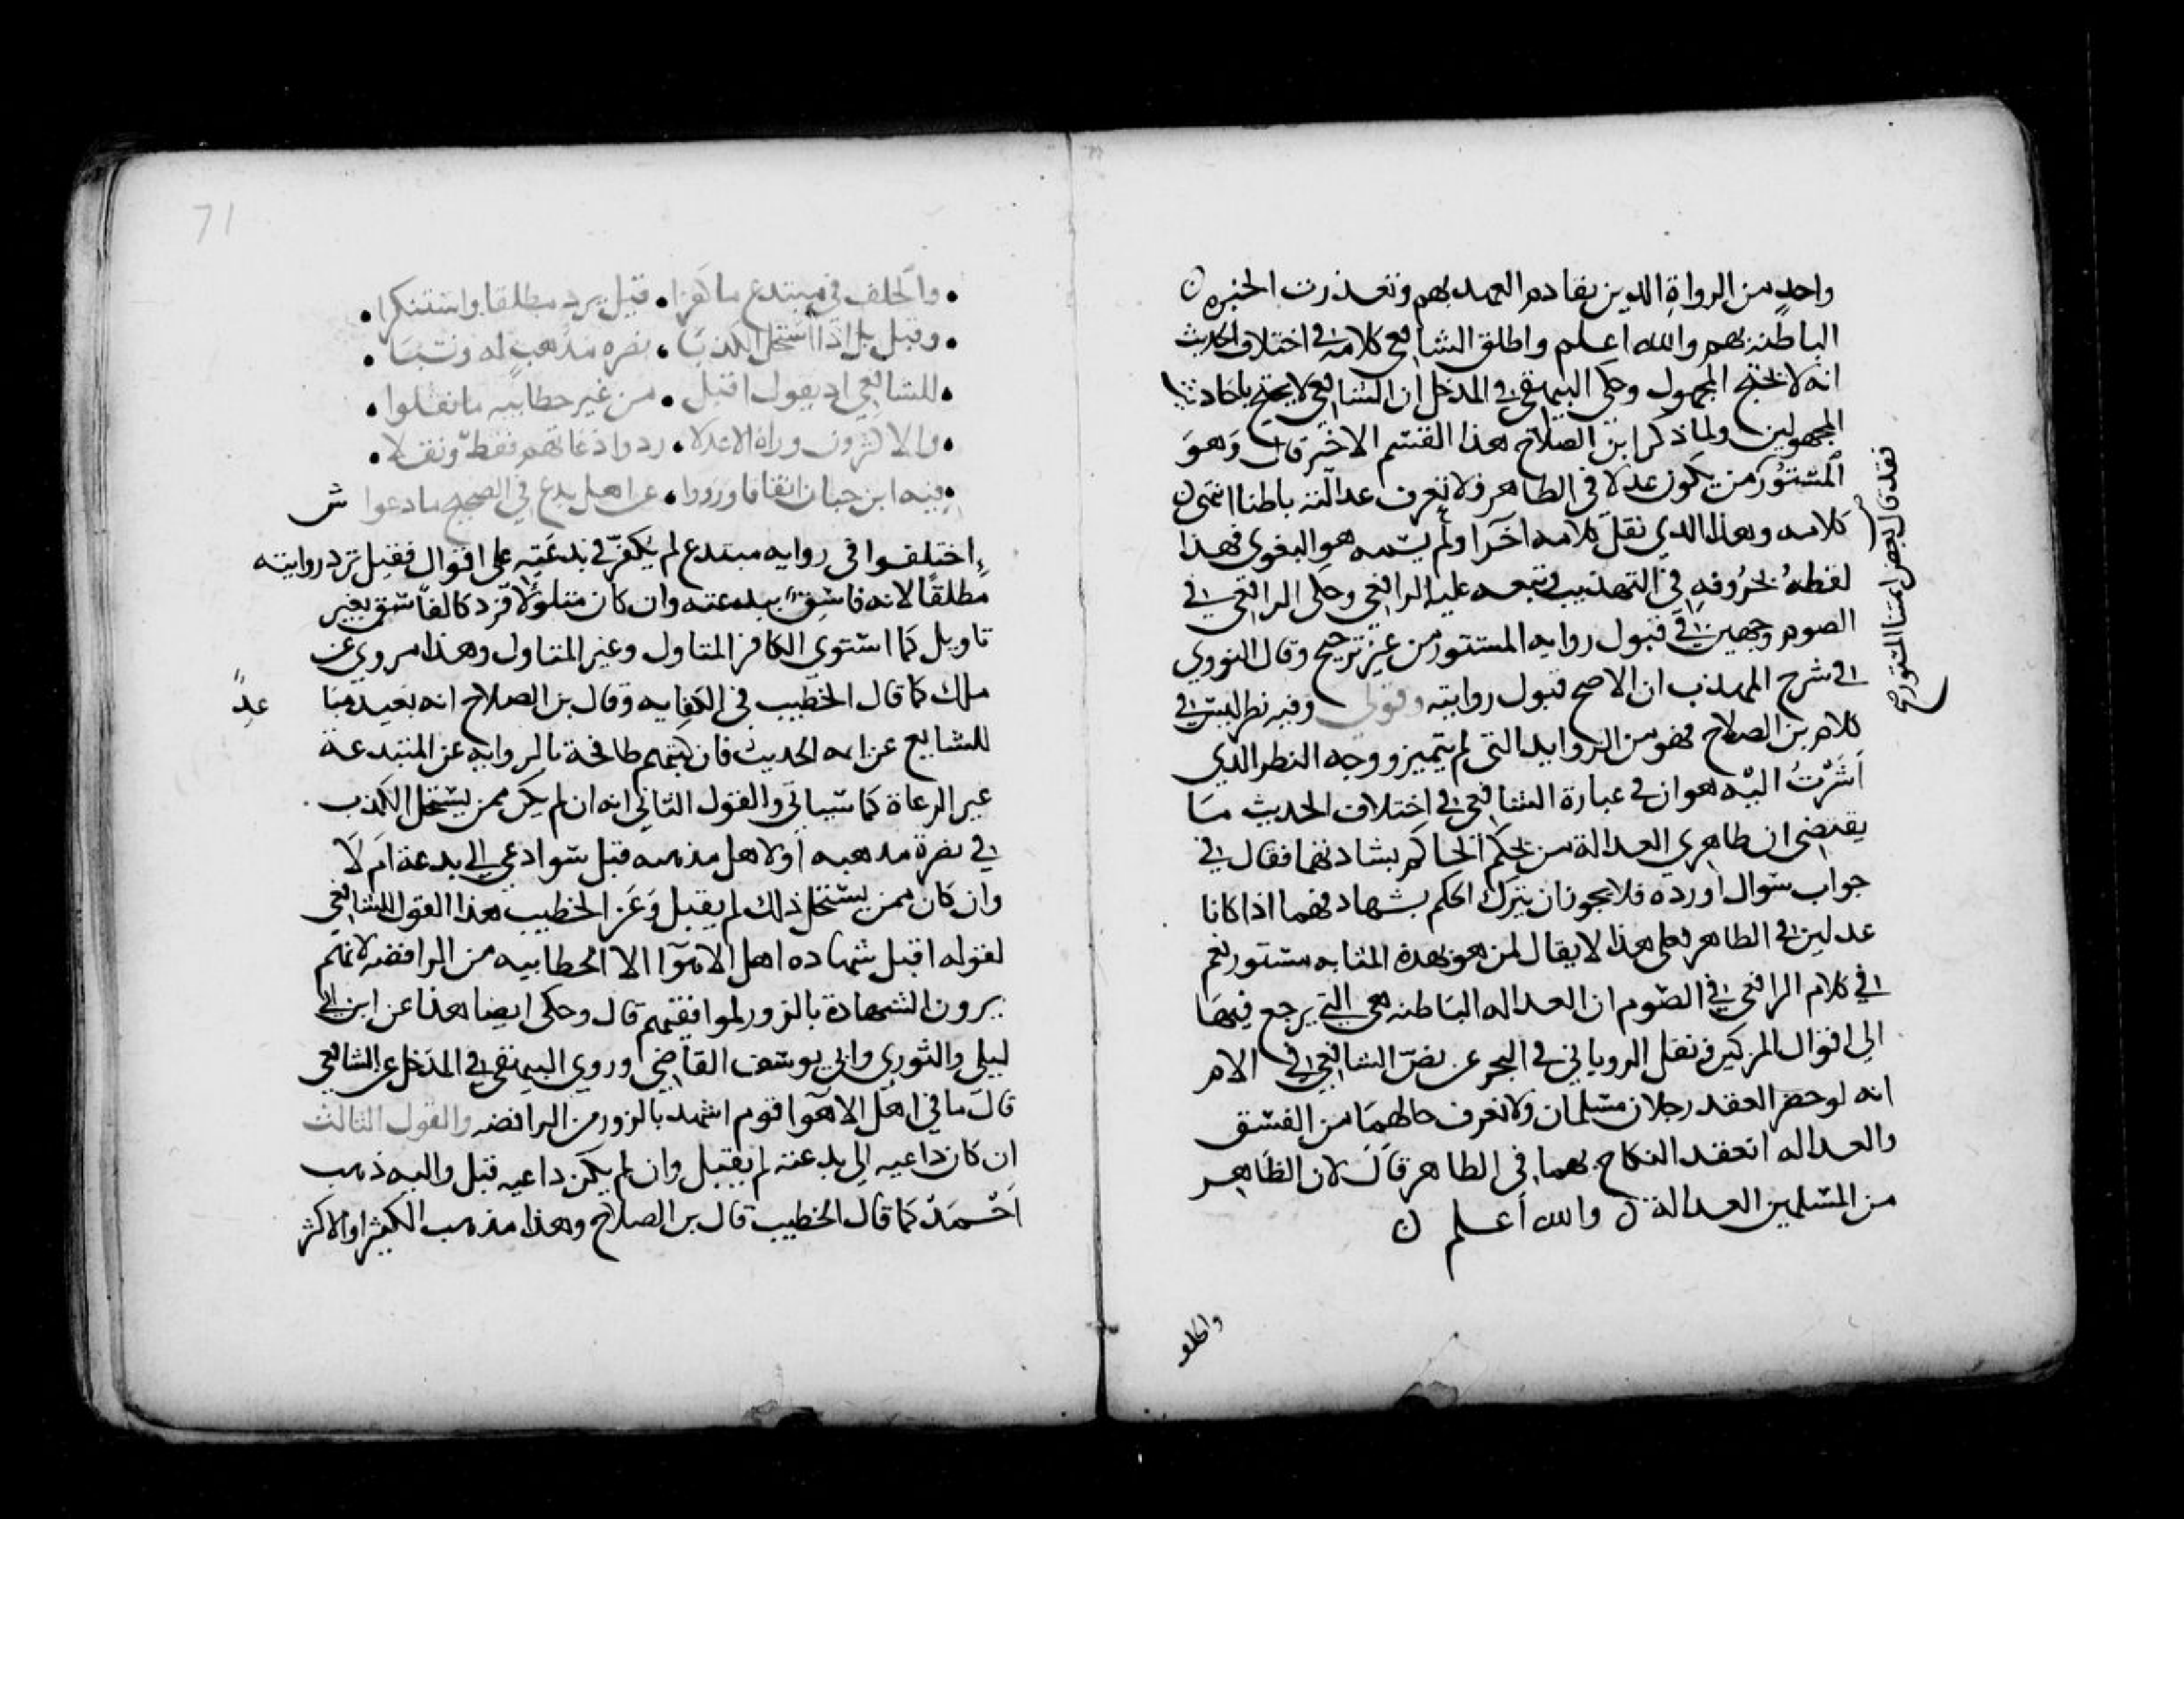 واحد من الرواة الدين تقادم العهد بهم وتعذرت الخبره
الباطنه بهم والله اعلم واطلق الشافعي كلامه في اختلاف الحديث
انه لا يحتج المجهول وحكي البيهقي في المدخل ان الشافعي لا يحتج باحاديث
المجهولين ولما ذكر ابن الصلاح هذا القسم الاخير قال وهو
المستور من يكون عدلا في الظاهر ولا تعرف عدالته باطنا انتهى
كلامه وهذا الدي نقل كلامه اخرا ولم يسمه هو البغوى فهذا
لفظه بحروفه في التهذيب وتبعه عليه الرافعي وحكى الرافعي في
الصوم وجهين في قبول روايه المستور من غير ترجيح وقال النووي
في شرح المهذب ان الاصح قبول روايته وقولي وفيه نظر ليس في
كلام بن الصلاح فهو من الزوايد التى لم تتميز ووجه النظر الدي
اشرت اليه هو ان في عبارة الشافعي في اختلاف الحديث ما
يقتضى ان ظاهري العدالة من يحكم الحاكم بشادتهما فقال في
جواب سوال اورده فلا يجوز ان يترك الحكم بشهادتهما اذا كانا
عدلين في الظاهر فعلى هذا لا يقال لمن هو بهذه المثابه مستور نعم
في كلام الرافعي في الصوم ان العداله الباطنه هي التي يرجع فيها
الي اقوال المزكين ونقل الروياني في البحر عن نص الشافعي في الام
انه لو حضر العقد رجلان مسلمان ولا تعرف حالهما من الفسق
والعداله انعقد النكاح بهما في الظاهر قال لان الظاهر
من المسلمين العدالة والله اعلم
نقله قال بعض ايمتنا المستور صح
والخلف
71
والخلف في مبتدع ما كفرا قيل يرد مطلقا واستنكرا
وقيل بل اذا استحل الكذبا نصره مذهب له ونسبا
للشافعي اذ يقول اقبل من غير خطابيه ما نقلوا
والاكثرون وراه الاعدلا ردوا دعاتهم فقط ونقلا
فيه ابن حبان اتفاقا ورووا عن اهل بدع في الصحيح ما دعوا ش
اختلفوا في روايه مبتدع لم يكفر في بدعته على اقوال فقيل ترد روايته
مطلقا لانه فاسق ببدعته وان كان متاولا فرد كالفاسق بغير
تاويل كما استوى الكافر المتاول وغير المتاول وهذا مروي عن
ملك كما قال الخطيب في الكفايه وقال بن الصلاح انه بعيد مباعد
للشايع عن ايمه الحديث فان كتبهم طافحة بالروايه عن المبتدعة
غير الدعاة كما سياتي والقول الثاني انه ان لم يكن ممن يستحل الكذب
في نصرة مذهبه او لاهل مذهبه قبل سوا دعى الي بدعة ام لا
وان كان ممن يستحل ذلك لم يقبل وعزا الخطيب هذا القول للشافعي
لقوله اقبل شهاده اهل الاهوا الا الخطابيه من الرافضه لانهم
يرون الشهادة بالزور لموافقيهم قال وحكى ايضا هذا عن ابن ابي
ليلى والثوري وابي يوسف القاضي وروي البيهقي في المدخل عن الشافعي
قال ما في اهل الاهوا قوم اشهد بالزور من الرافضه والقول الثالث
ان كان داعيه الي بدعته لم يقبل وان لم يكن داعيه قبل واليه ذهب
احمد كما قال الخطيب قال بن الصلاح وهذا مذهب الكثير او الاكثر